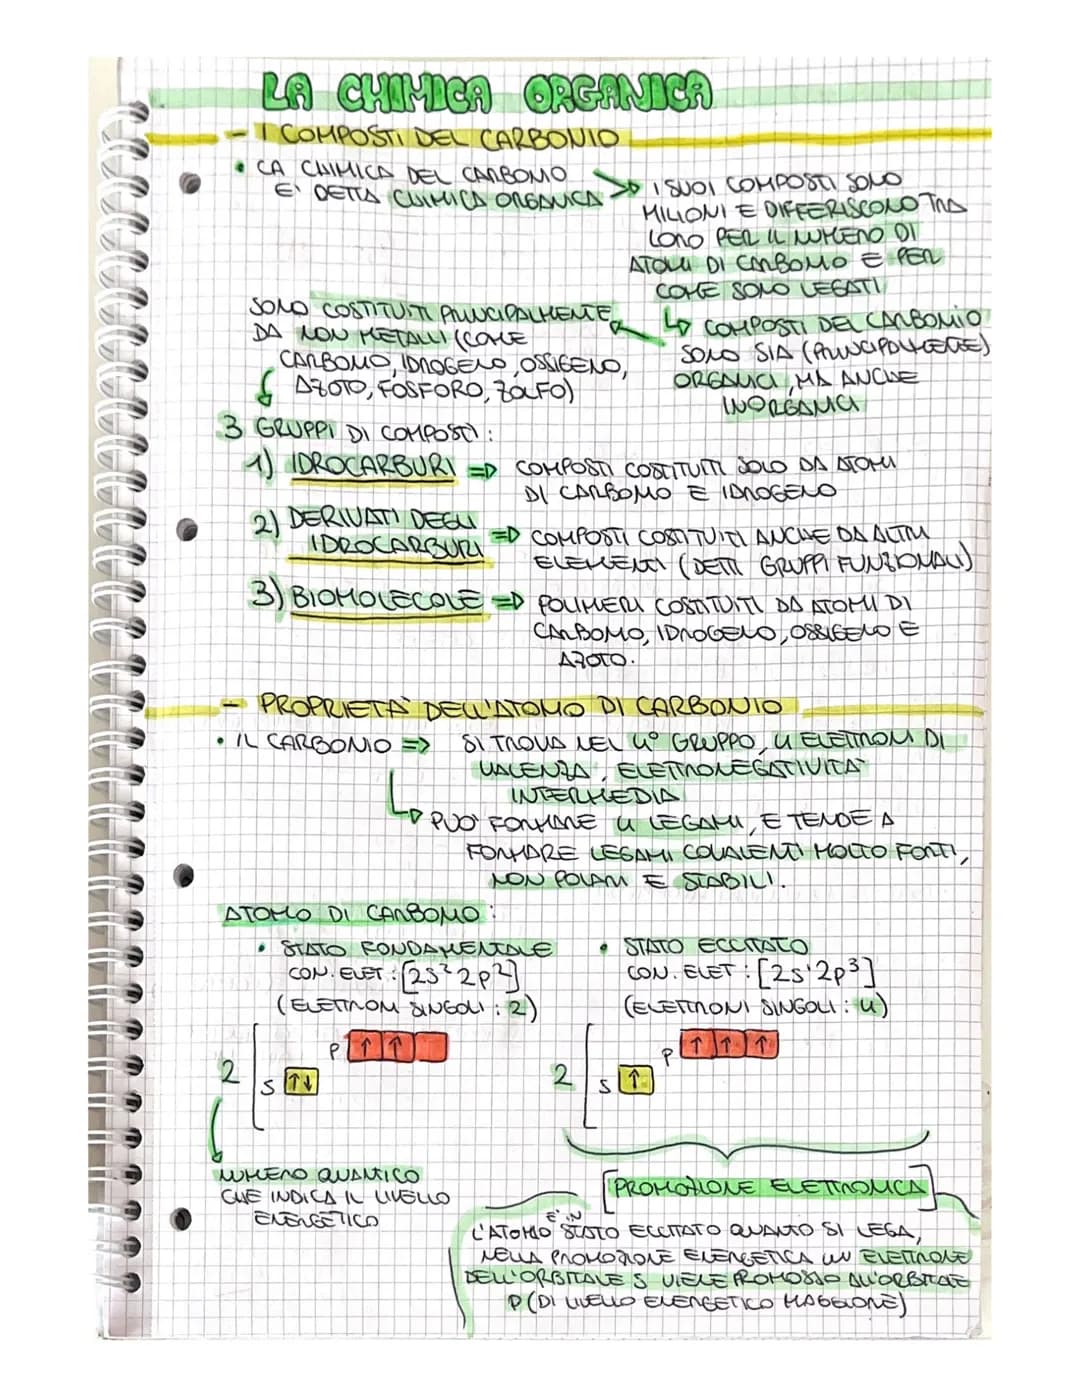 LA CHIMICA ORGANICA
- I COMPOSTI DEL CARBONIO
• LA CHIMICA DEL CARBONIO
E' DETTA CHIMICA ORGANICA
I SUOI COMPOSTI SONO
MILIONI E DIFFERISCONO TRA
LORO PER IL NUMERO DI
ATOMI DI CARBONIO E PER
COME SONO LEGATI
COMPOSTI DEL CARBONIO
SONO SIA (PRINCIPALMENTE)
ORGANICI, MA ANCHE
INORGANICI
SONO COSTITUITI PRINCIPALMENTE
DA NON METALLI (COME
CARBONIO, IDROGENO, OSSIGENO,
AZOTO, FOSFORO, ZOLFO)
3 GRUPPI DI COMPOSTI:
1) IDROCARBURI => COMPOSTI COSTITUITI SOLO DA ATOMI
DI CARBONIO E IDROGENO
2) DERIVATI DEGLI
IDROCARBURI => COMPOSTI COSTITUITI ANCHE DA ALTRI
ELEMENTI (DETTI GRUPPI FUNZIONALI)
3) BIOMOLECOLE => POLIMERI COSTITUITI DA ATOMI DI
CARBONIO, IDROGENO, OSSIGENO E
AZOTO.
- PROPRIETÀ DELL'ATOMO DI CARBONIO
• IL CARBONIO => SI TROVA NEL 4° GRUPPO, 4 ELETTRONI DI
VALENZA, ELETTRONEGATIVITÀ
INTERMEDIA
PUO' FORMARE 4 LEGAMI, E TENDE A
FORMARE LEGAMI COVALENTI MOLTO FORTI,
NON POLARI E STABILI.
ATOMO DI CARBONIO:
• STATO FONDAMENTALE
CON. ELET.: [2s² 2p²]
(ELETTRONI SINGOLI: 2)
P ↑ ↑
2
S ↑↓
NUMERO QUANTICO
CHE INDICA IL LIVELLO
ENERGETICO
• STATO ECCITATO
CON. ELET: [2s¹ 2p³]
(ELETTRONI SINGOLI: 4)
P ↑ ↑ ↑
2
S ↑
PROMOZIONE ELETTRONICA
L'ATOMO E' IN STATO ECCITATO QUANTO SI LEGA,
NELLA PROMOZIONE ENERGETICA UN ELETTRONE
DELL'ORBITALE S VIENE PROMOSSO ALL'ORBITALE
P (DI LIVELLO ENERGETICO MAGGIORE)